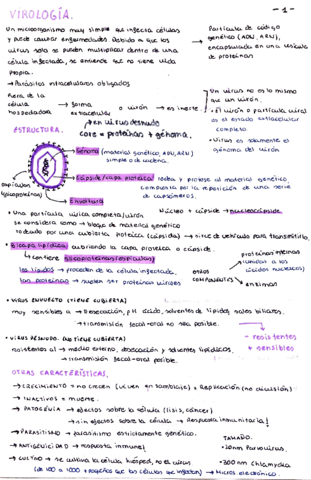 VIROLOGÍA.
- 1 -
Un microorganismo muy simple que infecta células
y puede causar enfermedades. Debido a que los
virus solo se pueden multiplicar dentro de una
célula infectada, se entiende que no tiene vida
propia.
→ Partícula de código
genético (ADN, ARN),
encapsulada en una vesícula
de proteínas
→ Parásitos intracelulares obligados
Fuera de la
célula
hospedadora
→ forma
extracelular
o virión → es inerte
Un virus no es lo mismo
que un virión.
• El virión o partícula viral
es el estado extracelular
completo
• Virus es solamente el
génoma del virión.
ESTRUCTURA.
en virus desnudo
core = proteínas + génoma.
Génoma (material genético, ADN, ARN)
simple o de cadena.
Cápside/capa proteica rodea y protege al material genético,
compuesta por la repetición de una serie
de capsómeros.
Envoltura
(glicoproteínas)
Núcleo + cápside → nucleocápside
• Una partícula vírica completa/virión
se considera como → bloque de material genético
rodeado por una cubierta proteica (cápsida) → sirve de vehículo para transmitirlo.
Bicapa lipídica cubriendo la capa proteica o cápside.
↳ contiene glicoproteínas (espículas)
los lípidos → proceden de la célula infectada.
las proteínas → suelen ser proteínas virales
otros
componentes
proteínas
(unidas a los
ácidos nucleicos)
enzimas
• VIRUS ENVUELTO (TIENE CUBIERTA)
muy sensibles a → Desecación, pH ácido, solventes de lípidos, sales biliares.
↳ transmisión fecal-oral no sea posible.
- resistentes
+ sensibles
• VIRUS DESNUDO (NO TIENE CUBIERTA)
resistentes al → medio externo, desecación y solventes lipídicos.
↳ transmisión fecal-oral posible.
OTRAS CARACTERÍSTICAS.
→ CRECIMIENTO ≠ no crecen + REPLICACIÓN (no división)
→ INACTIVOS ≠ MUERTE.
→ PATOGENIA → efectos sobre la célula (lisis, cáncer)
→ sin efectos sobre la célula → Respuesta inmunitaria!
→ PARASITISMO → parasitismo estrictamente genético.
→ ANTIGENICIDAD → respuesta inmune!
→ CULTIVO → se cultiva la célula huésped, no el virus
TAMAÑO.
• 20nm Parvovirus.
• 300 nm Chlamydia
(de 100 a 1000 + pequeños que las células que infectan) → Micros electrónico